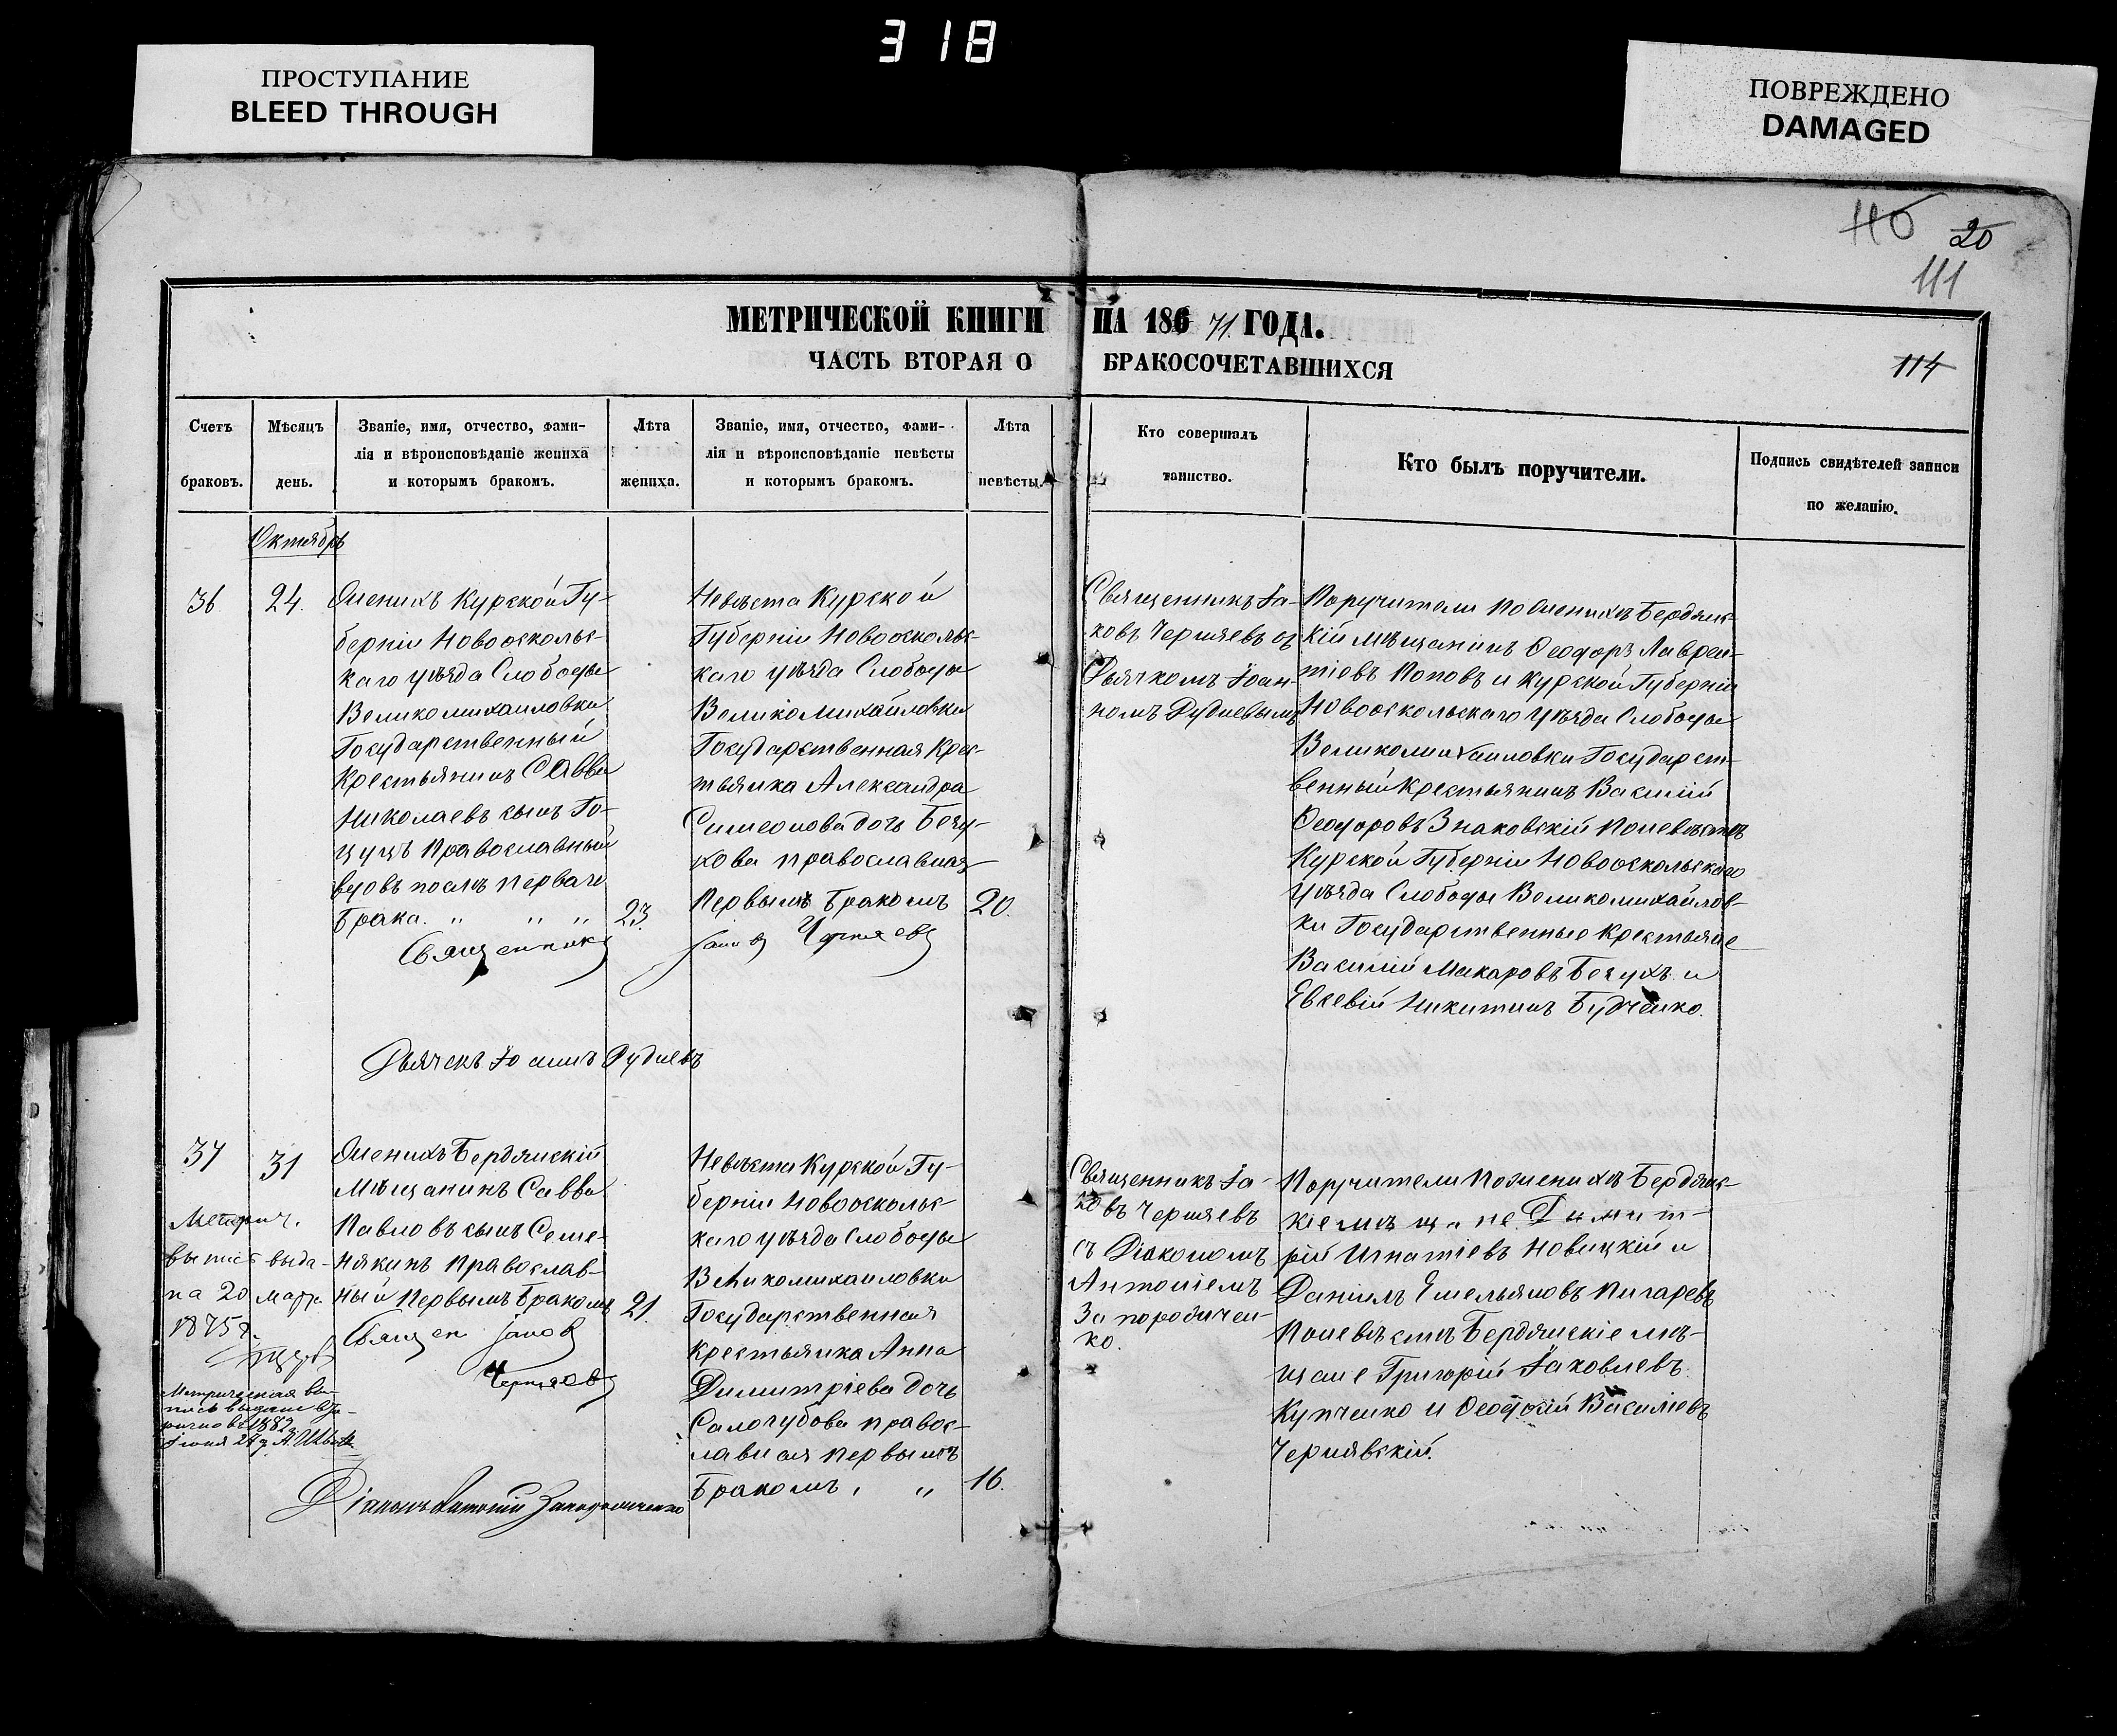 318
ПРОСТУПАНИЕ
BLEED THROUGH
ПОВРЕЖДЕНО
DAMAGED
110 20
111
МЕТРИЧЕСКОЙ КНИГИ НА 186 71 ГОДА.
ЧАСТЬ ВТОРАЯ О БРАКОСОЧЕТАВШИХСЯ
114
Счетъ
браковъ.
Мѣсяцъ
день.
Званіе, имя, отчество, фами-
лія и вѣроисповѣданіе жениха
и которымъ бракомъ.
Лѣта
жениха.
Званіе, имя, отчество, фами-
лія и вѣроисповѣданіе невѣсты
и которымъ бракомъ.
Лѣта
невѣсты.
Кто совершалъ
таинство.
Кто былъ поручители.
Подпись свидѣтелей записи
по желанію.
Октябрь
36
24.
Женихъ Курской Гу-
берніи Новоосколь-
каго уѣзда Слободы
Великомихайловки
Государственный
Крестьянинъ Савва
Николаевъ сынъ Го-
цуцъ Православный
вдовъ послѣ перваго
Брака. " " "
23.
Невѣста Курской
Губерніи Новоосколь-
каго уѣзда Слободы
Великомихайловки
Государственная Крес-
тьянка Александра
Симеонова дочь Бечу-
хова православная
Первымъ Бракомъ
20.
Священникъ Іа-
ковъ Черняевъ съ
Дьячкомъ Іоан-
номъ Рудневымъ
Поручители по Женихѣ Бердянс-
кій Мѣщанинъ Ѳеодоръ Лаврен-
тіевъ Поповъ и Курской Губерніи
Новооскольскаго Уѣзда Слободы
Великомихайловки Государст-
венный Крестьянинъ Василій
Ѳеодоровъ Знаковскій По невѣстѣ
Курской Губерніи Новооскольскаго
Уѣзда Слободы Великомихайлов-
ки Государственные Крестьяне
Василій Макаровъ Бечухъ и
Евсевій Никитинъ Будченко.
Священникъ Іаковъ Черняевъ
Дьячекъ Іоаннъ Рудневъ
37
31
Женихъ Бердянскій
Мѣщанинъ Савва
Павловъ сынъ Семе-
някинъ Православ-
ный Первымъ Бракомъ
21.
Невѣста Курской Гу-
берніи Новоосколь-
каго уѣзда Слободы
Великомихайловки
Государственная
Крестьянка Анна
Димитріева дочь
Самогубова правос-
лавная первымъ
Бракомъ , "
16.
Священникъ Іа-
ковъ Черняевъ
съ Діакономъ
Антоніемъ
Запорожчен-
ко.
Поручители По женихѣ Бердянс-
кіе мѣщане Димит-
рій Игнатіевъ Новицкій и
Даніилъ Емельяновъ Пигаревъ
По невѣстѣ Бердянскіе мѣ-
щане Григорій Іаковлевъ
Купченко и Ѳеодосій Василіевъ
Чернявскій.
Метрич.
выпись выда-
на 20 марта
1875 г.
Метрическая вы-
пись выдана
1882
Іюня 24
Священ Іаковъ
Черняевъ
Діаконъ Антоній Запорожченко